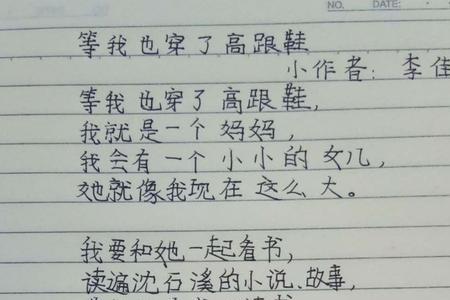 NO. DATE:
等我也穿了高跟鞋
小作者：李佳
等我也穿了高跟鞋，
我就是一个妈妈，
我会有一个小小的女儿，
她就像我现在这么大。
我要和她一起看书，
读遍沈石溪的小说、故事，